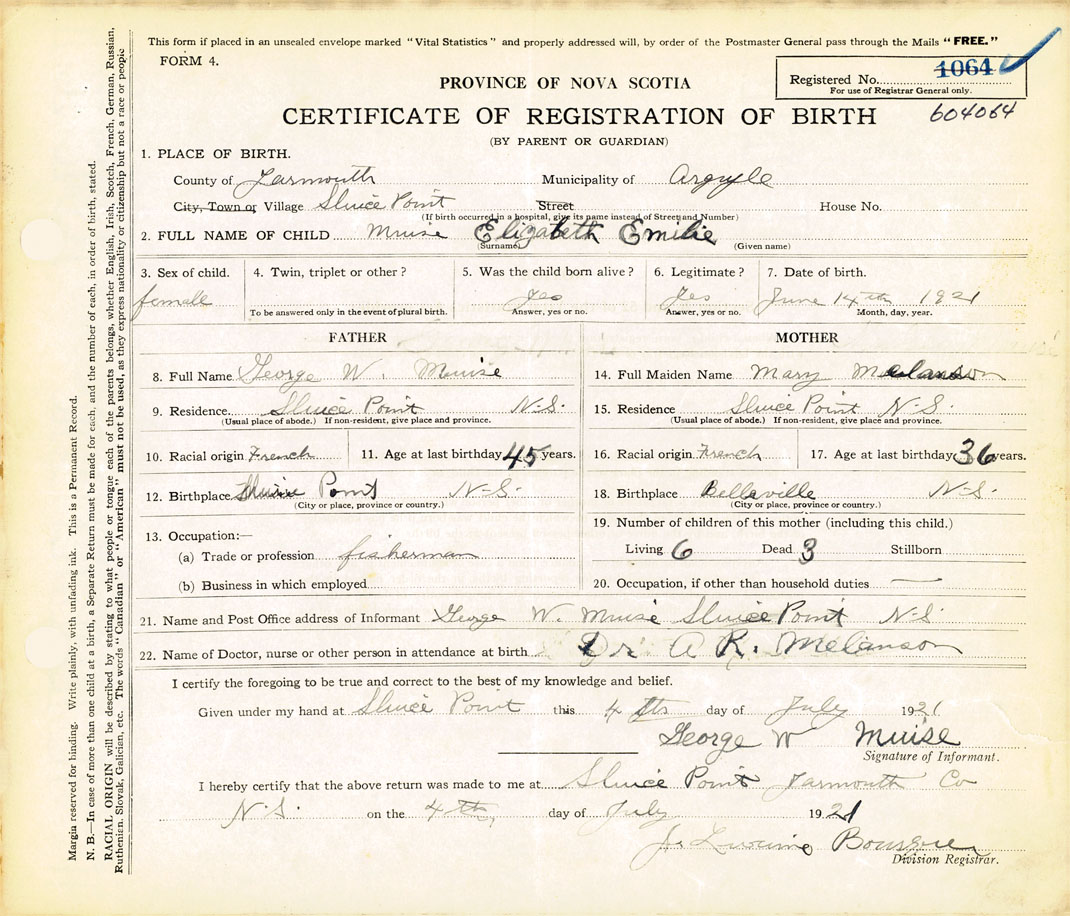 This form if placed in an unsealed envelope marked "Vital Statistics" and properly addressed will, by order of the Postmaster General pass through the Mails "FREE."
FORM 4.
PROVINCE OF NOVA SCOTIA
Registered No. 1064
For use of Registrar General only.
604064
CERTIFICATE OF REGISTRATION OF BIRTH
(BY PARENT OR GUARDIAN)
1. PLACE OF BIRTH.
County of Yarmouth Municipality of Argyle
City, Town or Village Sluice Point Street House No.
(If birth occurred in a hospital, give its name instead of Street and Number)
2. FULL NAME OF CHILD Muise Elizabeth Emilie
(Surname) (Given name)
3. Sex of child. 4. Twin, triplet or other? 5. Was the child born alive? 6. Legitimate? 7. Date of birth.
female Yes Yes June 14th 1921
To be answered only in the event of plural birth. Answer, yes or no. Answer, yes or no. Month, day, year.
FATHER MOTHER
8. Full Name George W. Muise 14. Full Maiden Name Mary Melanson
9. Residence Sluice Point N.S. 15. Residence Sluice Point N.S.
(Usual place of abode.) If non-resident, give place and province. (Usual place of abode.) If non-resident, give place and province.
10. Racial origin French 11. Age at last birthday 45 years. 16. Racial origin French 17. Age at last birthday 36 years.
12. Birthplace Sluice Point N.S. 18. Birthplace Belleville N.S.
(City or place, province or country.) (City or place, province or country.)
13. Occupation:— 19. Number of children of this mother (including this child.)
(a) Trade or profession fisherman Living 6 Dead 3 Stillborn
(b) Business in which employed 20. Occupation, if other than household duties —
21. Name and Post Office address of Informant George W. Muise Sluice Point N.S
22. Name of Doctor, nurse or other person in attendance at birth Dr. A R. Melanson
I certify the foregoing to be true and correct to the best of my knowledge and belief.
Given under my hand at Sluice Point this 4th day of July 1921
George W Muise
Signature of Informant.
I hereby certify that the above return was made to me at Sluice Point Yarmouth Co
N.S. on the 4th day of July 1921
Bourque
Division Registrar.
Margin reserved for binding. Write plainly, with unfading ink. This is a Permanent Record.
N. B.—In case of more than one child at a birth, a Separate Return must be made for each, and the number of each, in order of birth, stated.
RACIAL ORIGIN will be described by stating to what people or tongue each of the parents belongs, whether English, Irish, Scotch, French, German, Russian,
Ruthenian, Slovak, Galician, etc. The words "Canadian" or "American" must not be used, as they express nationality or citizenship but not a race or people